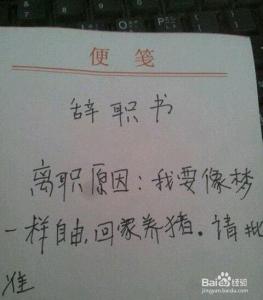 便笺
辞职书
离职原因：我要像梦
一样自由，回家养猪。请批
准
Baidu经验
jingyan.baidu.com